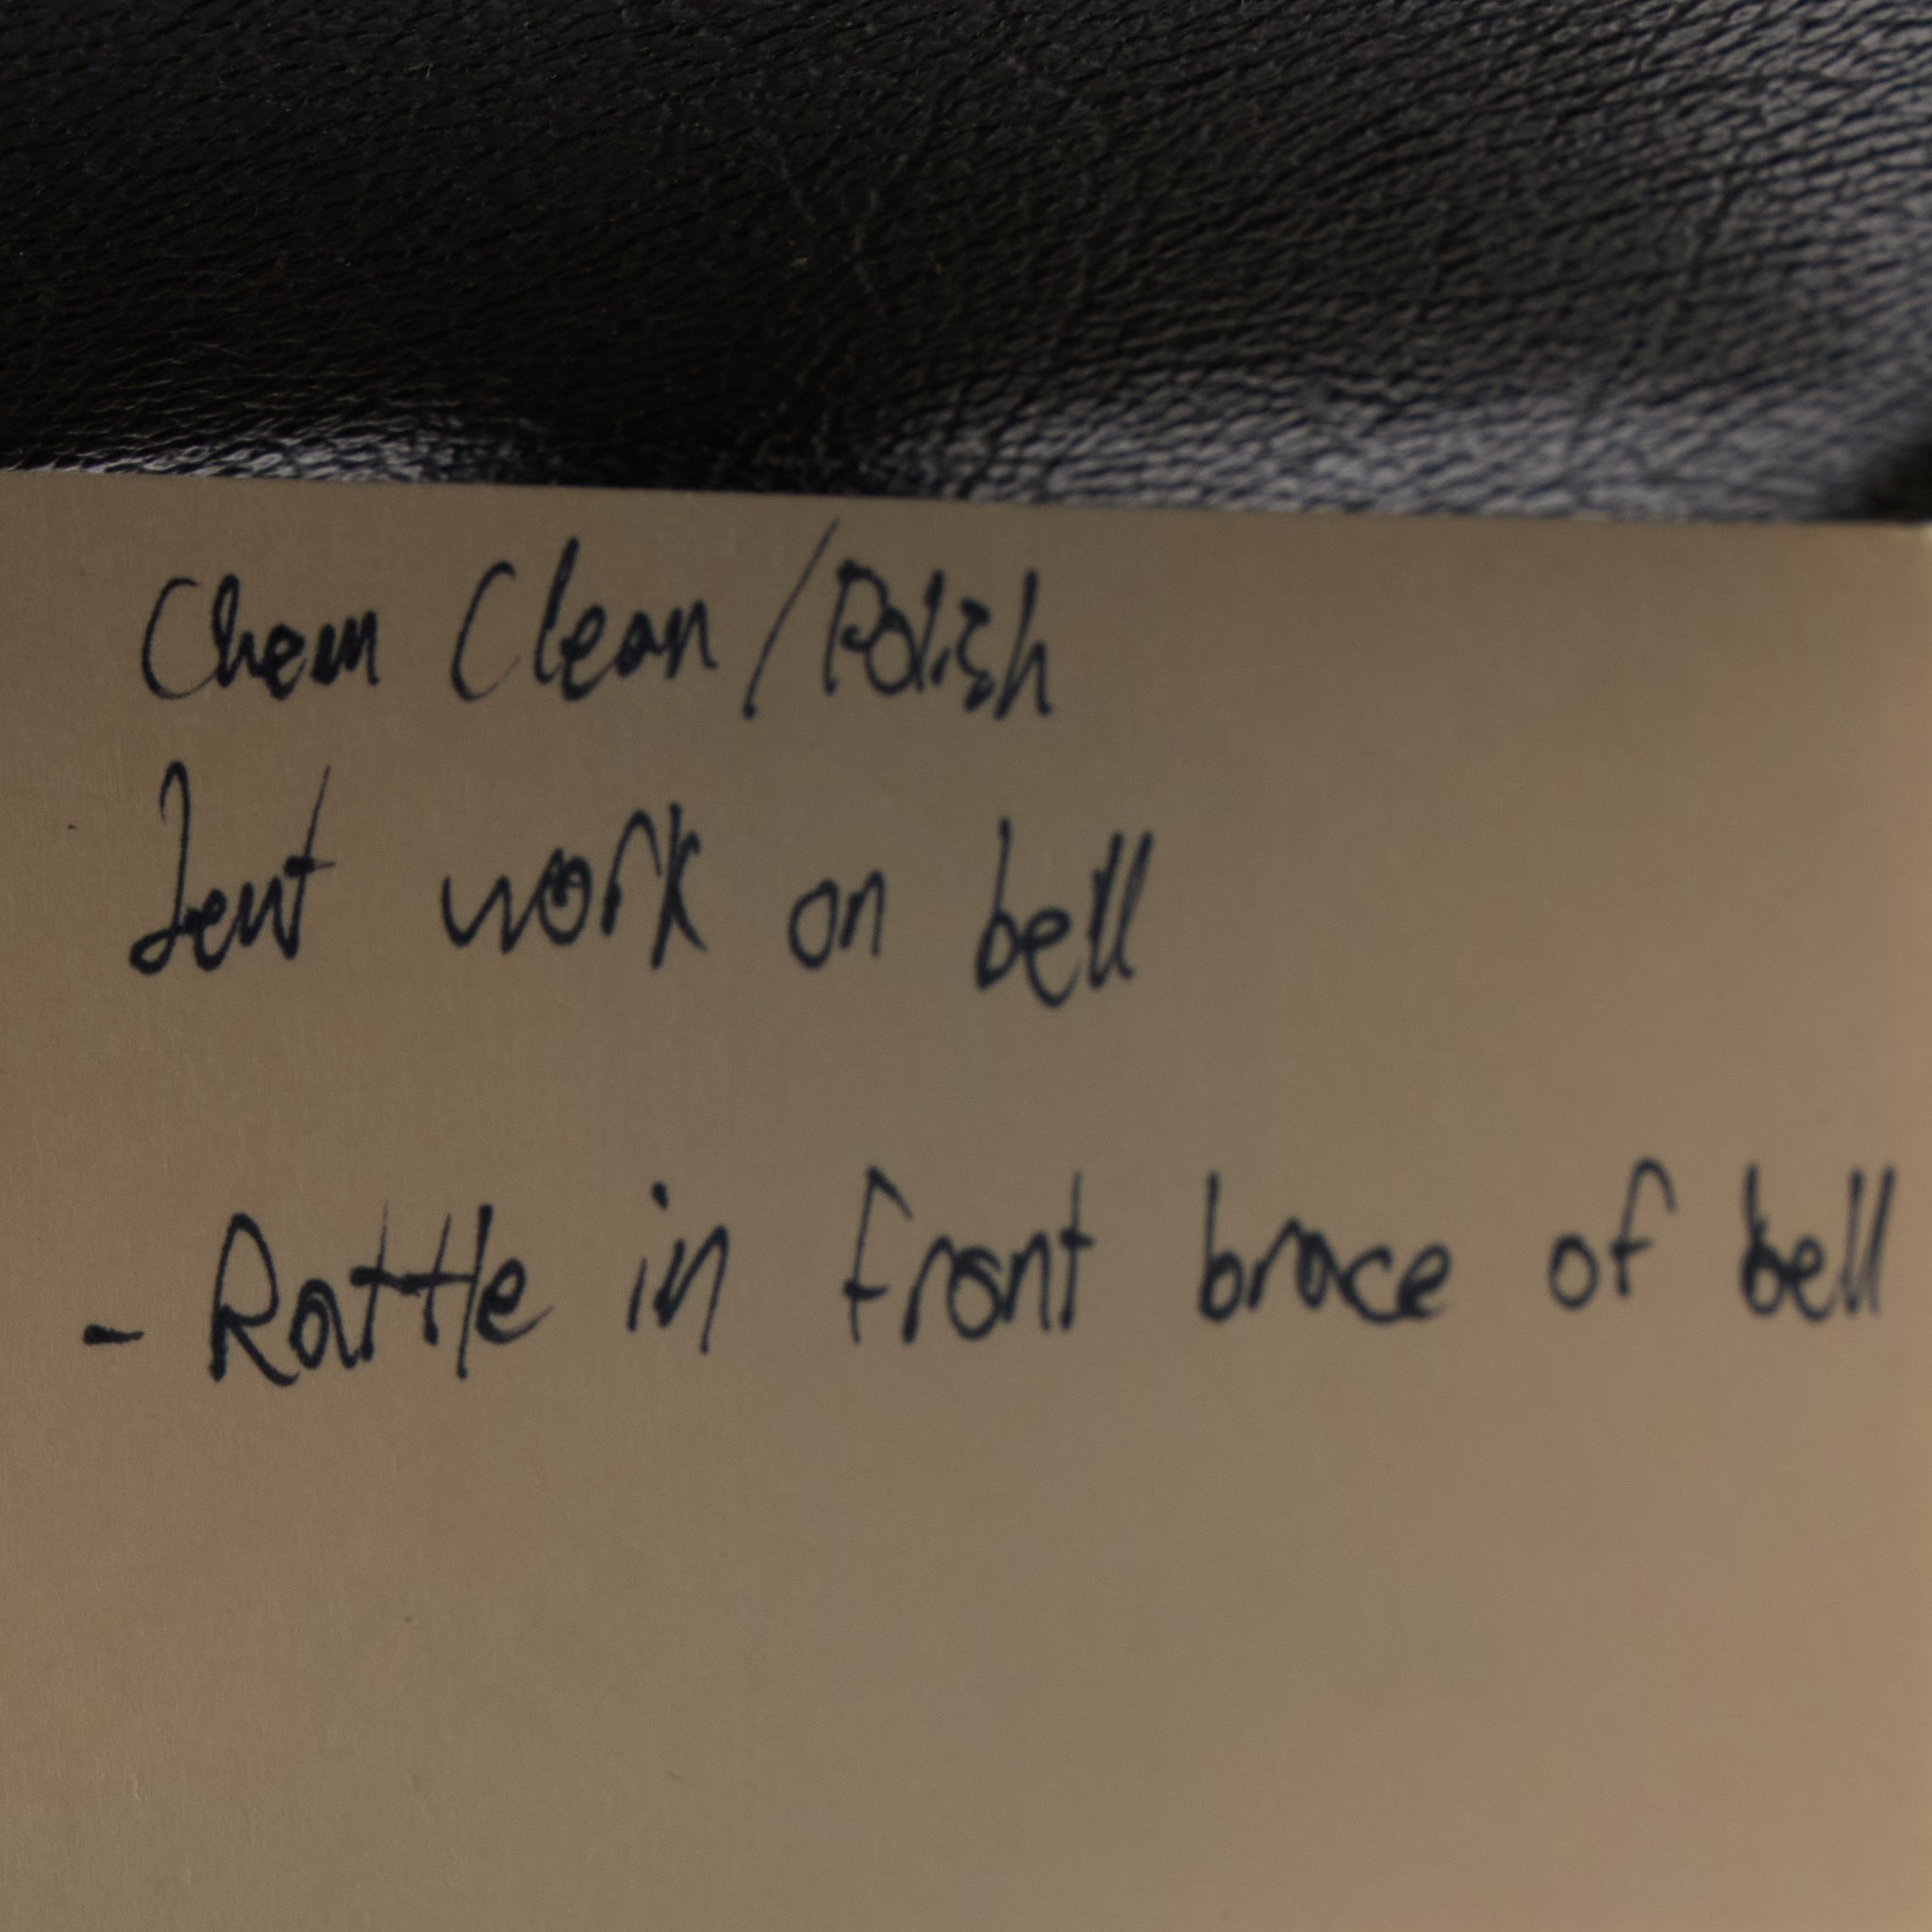 Chem Clean/Polish
Dent work on bell
- Rattle in front brace of bell